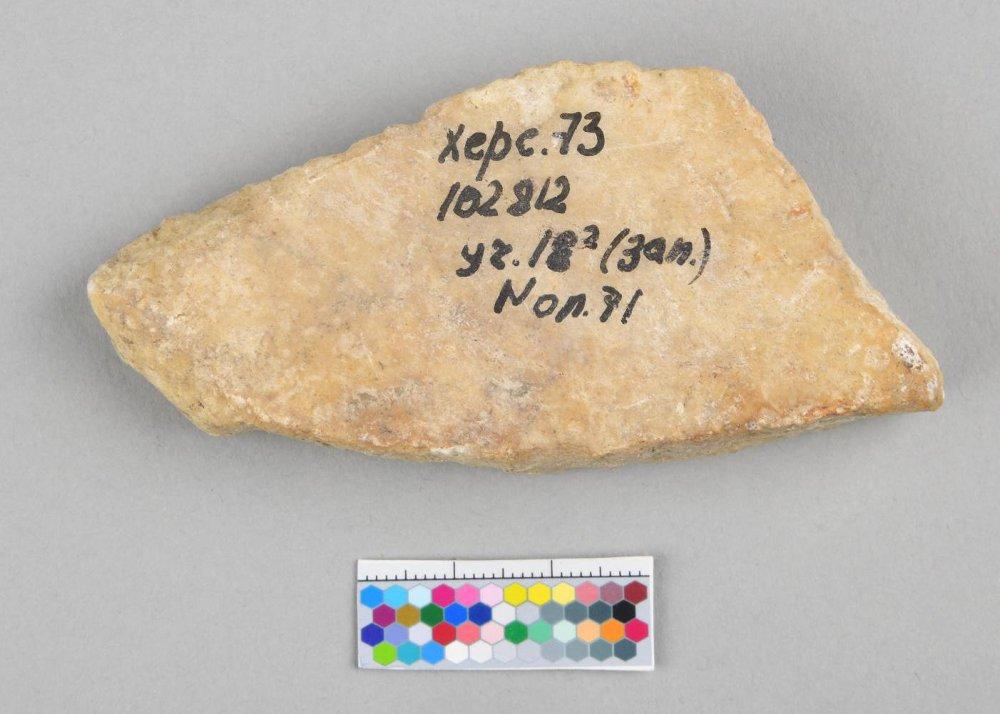 Херс.73
102812
уг.18² (зап.)
Nоп.71